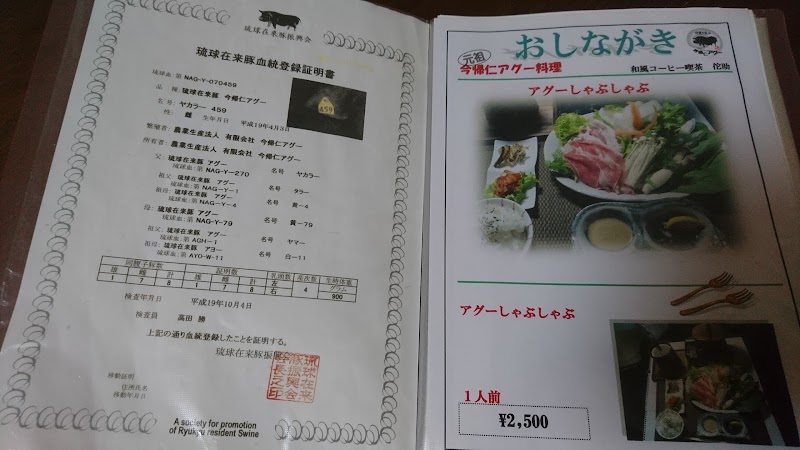 琉球在来豚振興会
琉球在来豚血統登録証明書
琉球血:第 NAG-Y-070459
品 種:琉球在来豚 今帰仁アグー
名 号:ヤカラー 459
性: 雌 生年月日 平成19年4月3日
繁殖者:農業生産法人 有限会社 今帰仁アグー
所有者:農業生産法人 有限会社 今帰仁アグー
父:琉球在来豚 アグー 名号 ヤカラー
琉球血:第 NAG-Y-270
祖父:琉球在来豚 アグー 名号 タラー
琉球血:第 NAG-Y-1
祖母:琉球在来豚 アグー 名号 黄-4
琉球血:第 NAG-Y-4
母:琉球在来豚 アグー 名号 黄-79
琉球血:第 NAG-Y-79
祖父:琉球在来豚 アグー 名号 ヤマー
琉球血:第 AGH-1
祖母:琉球在来豚 アヨー 名号 白-11
琉球血:第 AYO-W-11
同腹子豚数 証明数 乳頭数 産次数 生時体重
雄 雌 計 雄 雌 計 左 右 4 グラム
1 7 8 1 7 8 900
検査年月日 平成19年10月4日
検査員 高田 勝
上記の通り血統登録したことを証明する。
琉球在来豚振興会
琉球在来豚振興会会長之印
移動証明
住所氏名
移動年月日
A society for promotion
of Ryukyu resident Swine
459
おしながき
元祖
今帰仁アグー料理
和風コーヒー喫茶 佗助
アグーしゃぶしゃぶ
アグーしゃぶしゃぶ
1人前
¥2,500